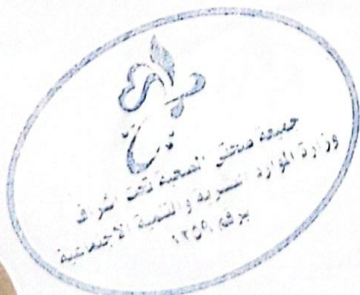 جمعية الصحية تحت اشراف
وزارة الموارد البشرية و التنمية الاجتماعية
برقم ١٢٥٩